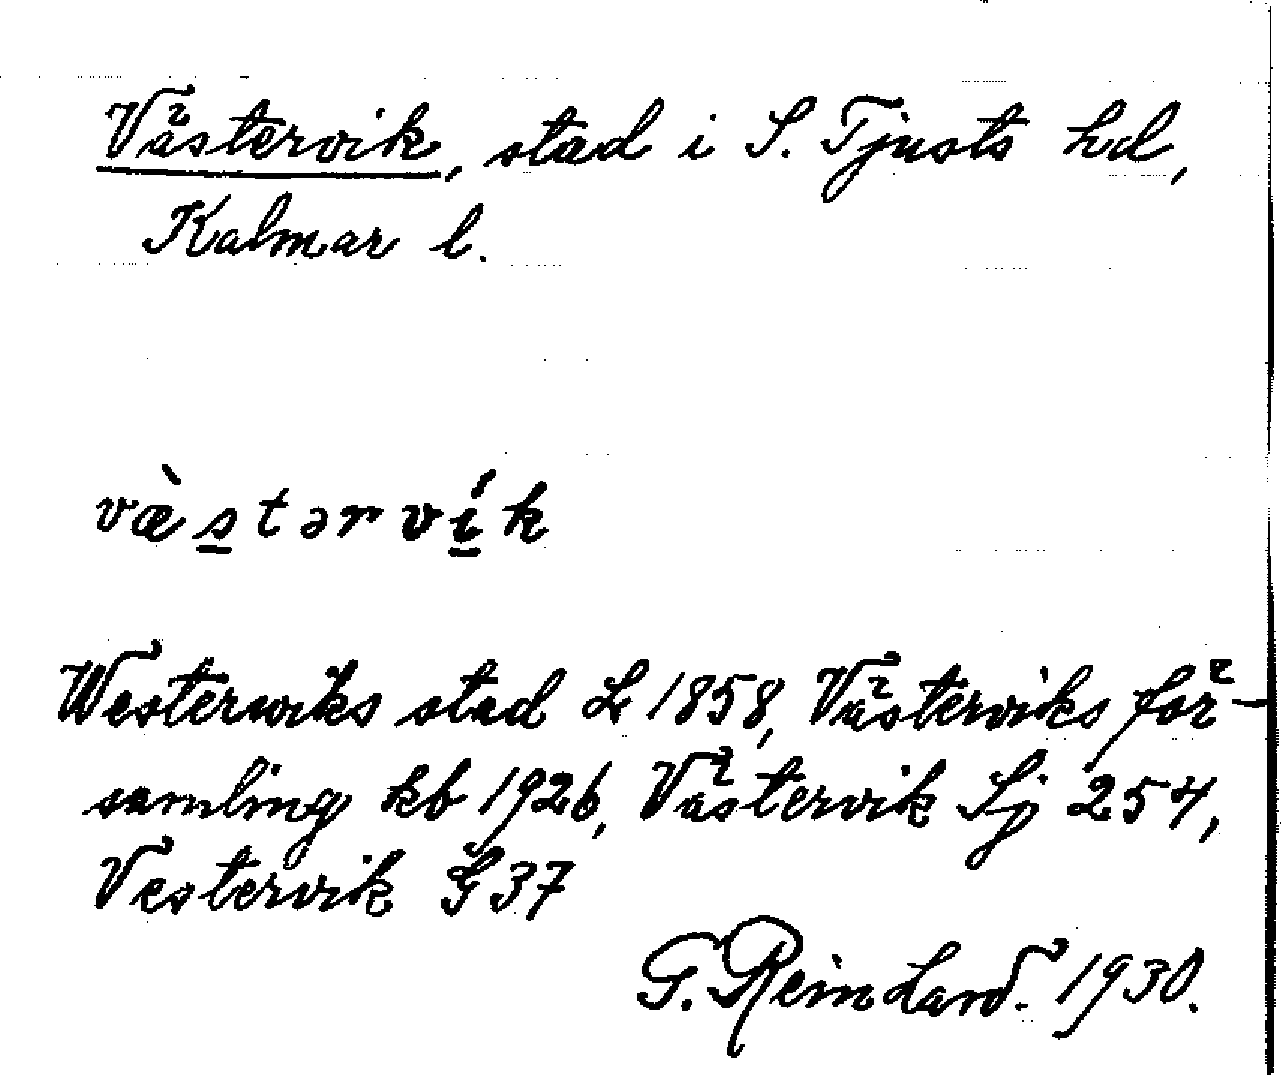 Västervik, stad i S. Tjusts hd,
Kalmar l.
væ̀stərvík
Westerwiks stad L 1858, Västerviks för-
samling kb 1926, Västervik Sj 254,
Vestervik G 37
G. Reinhard. 1930.